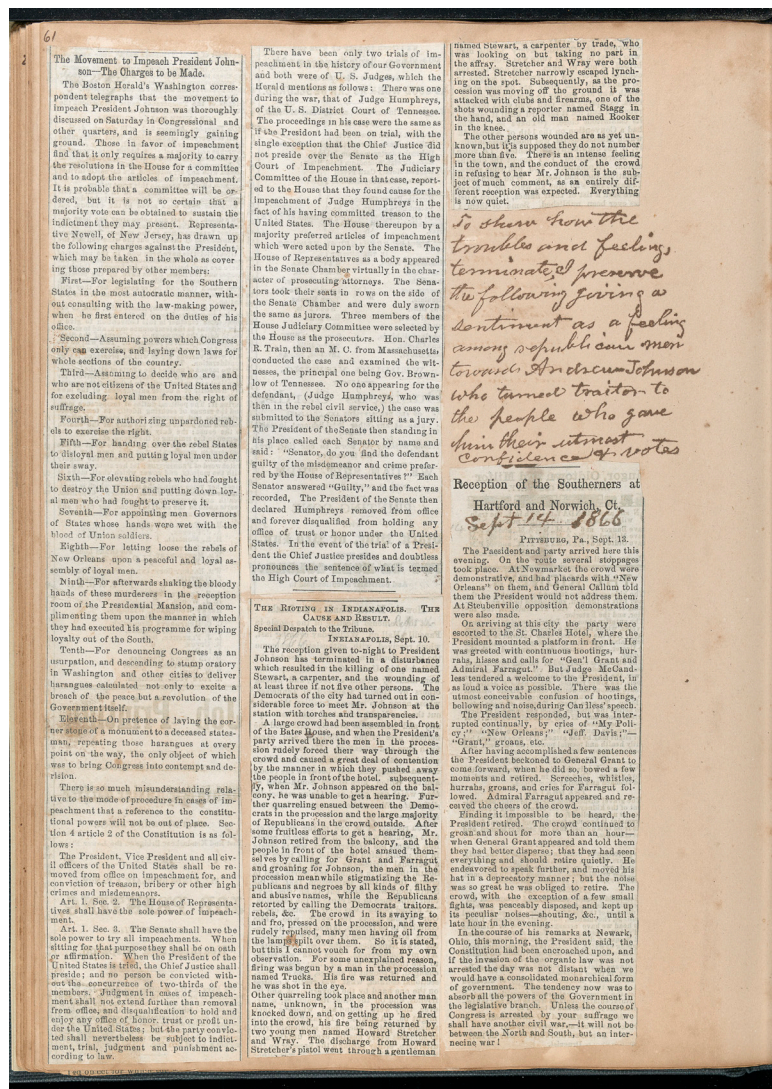 61
The Movement to Impeach President John-
son—The Charges to be Made.
The Boston Herald's Washington corres-
pondent telegraphs that the movement to
impeach President Johnson was thoroughly
discussed on Saturday in Congressional and
other quarters, and is seemingly gaining
ground. Those in favor of impeachment
find that it only requires a majority to carry
the resolutions in the House for a committee
and to adopt the articles of impeachment.
It is probable that a committee will be or-
dered, but it is not so certain that a
majority vote can be obtained to sustain the
indictment they may present. Representa-
tive Newell, of New Jersey, has drawn up
the following charges against the President,
which may be taken in the whole as cover
ing those prepared by other members:
First—For legislating for the Southern
States in the most autocratic manner, with-
out consulting with the law-making power,
when he first entered on the duties of his
office.
Second—Assuming powers which Congress
only can exercise, and laying down laws for
whole sections of the country.
Third—Assuming to decide who are and
who are not citizens of the United States and
for excluding loyal men from the right of
suffrage.
Fourth—For authorizing unpardoned reb-
els to exercise the right.
Fifth—For handing over the rebel States
to disloyal men and putting loyal men under
their sway.
Sixth—For elevating rebels who had fought
to destroy the Union and putting down loy-
al men who had fought to preserve it.
Seventh—For appointing men Governors
of States whose hands were wet with the
blood of Union soldiers.
Eighth—For letting loose the rebels of
New Orleans upon a peaceful and loyal as-
sembly of loyal men.
Ninth—For afterwards shaking the bloody
hands of these murderers in the reception
room of the Presidential Mansion, and com-
plimenting them upon the manner in which
they had executed his programme for wiping
loyalty out of the South.
Tenth—For denouncing Congress as an
usurpation, and descending to stump oratory
in Washington and other cities to deliver
harangues calculated not only to excite a
breach of the peace but a revolution of the
Government itself.
Eleventh—On pretence of laying the cor-
ner stone of a monument to a deceased states-
man, repeating those harangues at every
point on the way, the only object of which
was to bring Congress into contempt and de-
rision.
There is so much misunderstanding rela-
tive to the mode of procedure in cases of im-
peachment that a reference to the constitu-
tional powers will not be out of place. Sec-
tion 4 article 2 of the Constitution is as fol-
lows:
The President, Vice President and all civ-
il officers of the United States shall be re-
moved from office on impeachment for, and
conviction of treason, bribery or other high
crimes and misdemeanors.
Art. 1. Sec. 2. The House of Representa-
tives shall have the sole power of impeach-
ment.
Art. 1. Sec. 3. The Senate shall have the
sole power to try all impeachments. When
sitting for that purpose they shall be on oath
or affirmation. When the President of the
United States is tried, the Chief Justice shall
preside; and no person be convicted with-
out the concurrence of two-thirds of the
members. Judgment in cases of impeach-
ment shall not extend further than removal
from office, and disqualification to hold and
enjoy any office of honor, trust or profit un-
der the United States; but the party convic-
ted shall nevertheless be subject to indict-
ment, trial, judgment and punishment ac-
cording to law.
There have been only two trials of im-
peachment in the history of our Government
and both were of U. S. Judges, which the
Herald mentions as follows: There was one
during the war, that of Judge Humphreys,
of the U. S. District Court of Tennessee.
The proceedings in his case were the same as
if the President had been on trial, with the
single exception that the Chief Justice did
not preside over the Senate as the High
Court of Impeachment. The Judiciary
Committee of the House in that case, report-
ed to the House that they found cause for the
impeachment of Judge Humphreys in the
fact of his having committed treason to the
United States. The House thereupon by a
majority preferred articles of impeachment
which were acted upon by the Senate. The
House of Representatives as a body appeared
in the Senate Chamber virtually in the char-
acter of prosecuting attorneys. The Sena-
tors took their seats in rows on the side of
the Senate Chamber and were duly sworn
the same as jurors. Three members of the
House Judiciary Committee were selected by
the House as the prosecutors. Hon. Charles
R. Train, then an M. C. from Massachusetts
conducted the case and examined the wit-
nesses, the principal one being Gov. Brown-
low of Tennessee. No one appearing for the
defendant, (Judge Humphreys, who was
then in the rebel civil service,) the case was
submitted to the Senators sitting as a jury.
The President of the Senate then standing in
his place called each Senator by name and
said: "Senator, do you find the defendant
guilty of the misdemeanor and crime prefer-
red by the House of Representatives?" Each
Senator answered "Guilty," and the fact was
recorded, The President of the Senate then
declared Humphreys removed from office
and forever disqualified from holding any
office of trust or honor under the United
States. In the event of the trial of a Presi-
dent the Chief Justice presides and doubtless
pronounces the sentence of what is termed
the High Court of Impeachment.
THE RIOTING IN INDIANAPOLIS. THE
CAUSE AND RESULT.
Special Despatch to the Tribune.
INDIANAPOLIS, Sept. 10.
The reception given to-night to President
Johnson has terminated in a disturbance
which resulted in the killing of one named
Stewart, a carpenter, and the wounding of
at least three if not five other persons. The
Democrats of the city had turned out in con-
siderable force to meet Mr. Johnson at the
station with torches and transparencies.
A large crowd had been assembled in front
of the Bates House, and when the President's
party arrived there the men in the proces-
sion rudely forced their way through the
crowd and caused a great deal of contention
by the manner in which they pushed away
the people in front of the hotel. subsequent-
ly, when Mr. Johnson appeared on the bal-
cony, he was unable to get a hearing. Fur-
ther quarreling ensued between the Demo-
crats in the procession and the large majority
of Republicans in the crowd outside. After
some fruitless efforts to get a hearing, Mr.
Johnson retired from the balcony, and the
people in front of the hotel amsued them-
selves by calling for Grant and Farragut
and groaning for Johnson, the men in the
procession meanwhile stigmatizing the Re-
publicans and negroes by all kinds of filthy
and abusive names, while the Republicans
retorted by calling the Democrats traitors,
rebels, &c. The crowd in its swaying to
and fro, pressed on the procession, and were
rudely repulsed, many men having oil from
the lamps spilt over them. So it is stated,
but this I cannot vouch for from my own
observation. For some unexplained reason,
firing was begun by a man in the procession
named Trucks. His fire was returned and
he was shot in the eye.
Other quarreling took place and another man
name, unknown, in the procession was
knocked down, and on getting up he fired
into the crowd, his fire being returned by
two young men named Howard Stretcher
and Wray. The discharge from Howard
Stretcher's pistol went through a gentleman
named Stewart, a carpenter by trade, who
was looking on but taking no part in
the affray. Stretcher and Wray were both
arrested. Stretcher narrowly escaped lynch-
ing on the spot. Subsequently, as the pro-
cession was moving off the ground it was
attacked with clubs and firearms, one of the
shots wounding a reporter named Stagg in
the hand, and an old man named Rooker
in the knee.
The other persons wounded are as yet un-
known, but it is supposed they do not number
more than five. There is an intense feeling
in the town, and the conduct of the crowd
in refusing to hear Mr. Johnson is the sub-
ject of much comment, as an entirely dif-
ferent reception was expected. Everything
is now quiet.
To show how the
troubles and feeling,
terminate, I preserve
the following giving a
sentiment as a feeling
among republican men
towards Andrew Johnson
who turned traitor to
the people who gave
him their utmost
confidence & votes
Reception of the Southerners at
Hartford and Norwich, Ct.
Sept 14 1866
PITTSBURG, Pa., Sept. 13.
The President and party arrived here this
evening. On the route several stoppages
took place. At Newmarket the crowd were
demonstrative, and had placards with "New
Orleans" on them, and General Callum told
them the President would not address them.
At Steubenville opposition demonstrations
were also made.
On arriving at this city the party were
escorted to the St. Charles Hotel, where the
President mounted a platform in front. He
was greeted with continuous hootings, hur-
rahs, hisses and calls for "Gen'l Grant and
Admiral Farragut." But Judge McCand-
less tendered a welcome to the President, in
as loud a voice as possible. There was the
utmost conceivable confusion of hootings,
bellowing and noise, during Can less' speech.
The President responded, but was inter-
rupted continually, by cries of "My Poli-
cy;" "New Orleans;" "Jeff. Davis;"—
"Grant," groans, etc.
After having accomplished a few sentences
the President beckoned to General Grant to
come forward, when he did so, bowed a few
moments and retired. Screeches, whistles,
hurrahs, groans, and cries for Farragut fol-
lowed. Admiral Farragut appeared and re-
ceived the cheers of the crowd.
Finding it impossible to be heard, the
President retired. The crowd continued to
groan and shout for more than an hour—
when General Grant appeared and told them
they had better disperse; that they had seen
everything and should retire quietly. He
endeavored to speak further, and moved his
hat in a deprecatory manner; but the noise
was so great he was obliged to retire. The
crowd, with the exception of a few small
fights, was peaceably disposed, and kept up
its peculiar noises—shouting, &c., until a
late hour in the evening.
In the course of his remarks at Newark,
Ohio, this morning, the President said, the
Constitution had been encroached upon, and
if the invasion of the organic law was not
arrested the day was not distant when we
would have a consolidated monarchical form
of government. The tendency now was to
absorb all the powers of the Government in
the legislative branch. Unless the course of
Congress is arrested by your suffrage we
shall have another civil war,—it will not be
between the North and South, but an inter-
necine war!